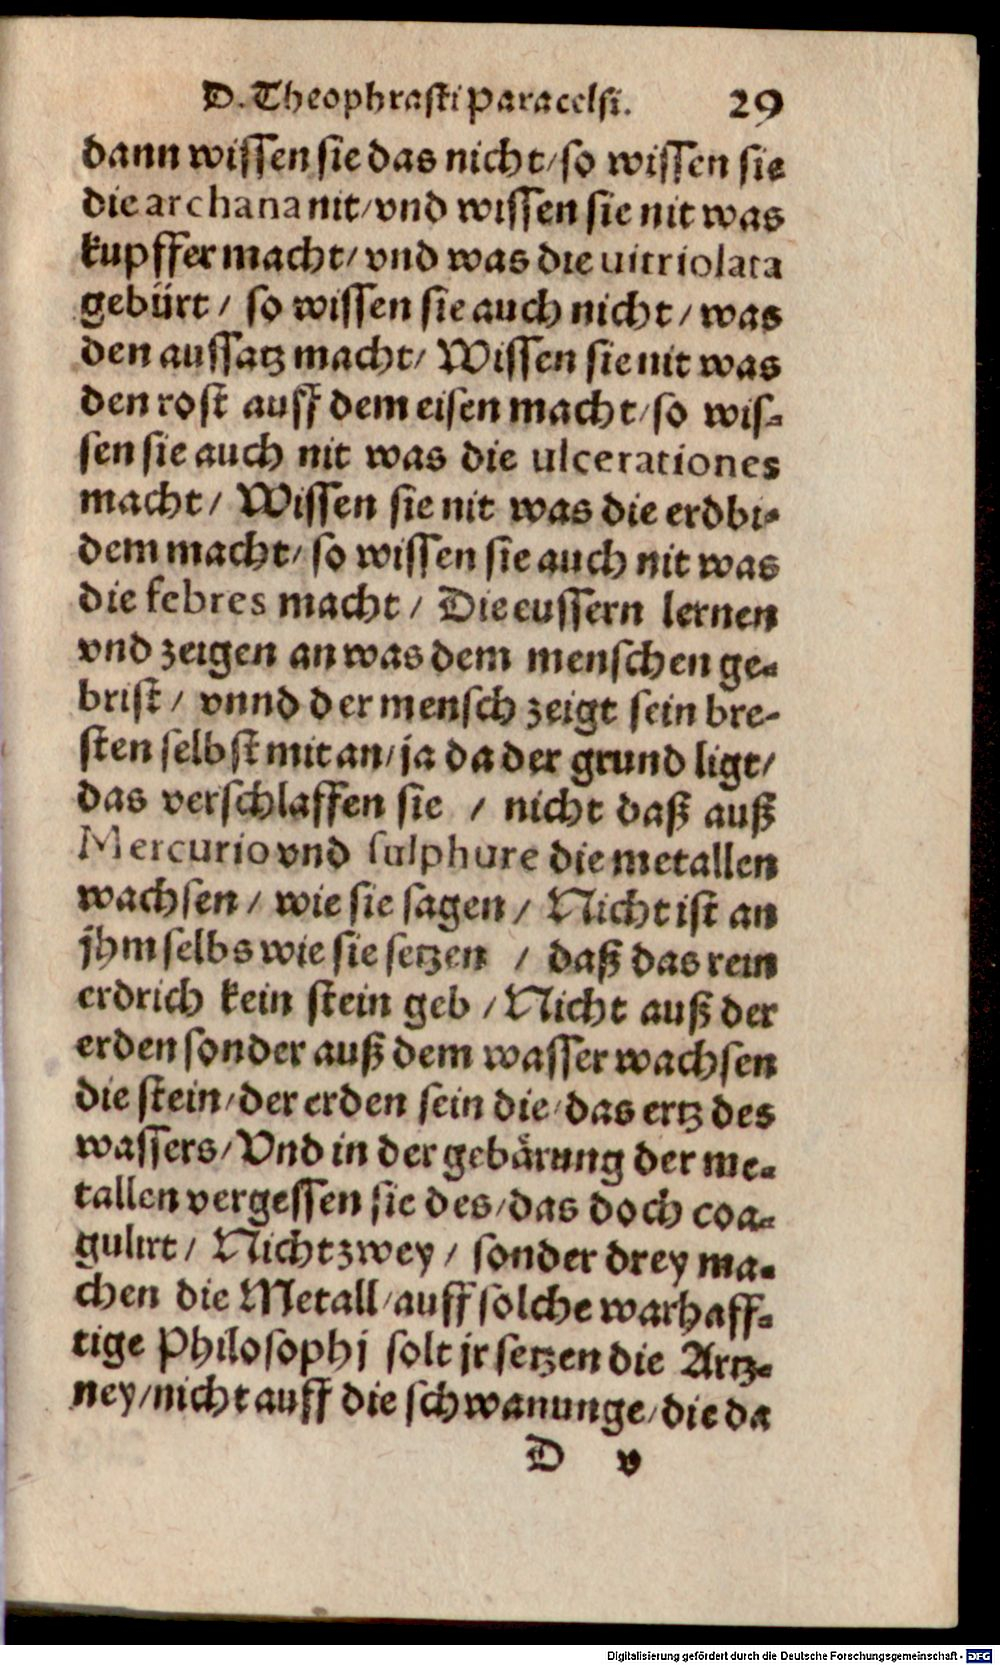 D. Theophrasti Paracelsi. 29
dann wissen sie das nicht/ so wissen sie
die archana nit/ vnd wissen sie nit was
kupffer macht/ vnd was die uitriolata
gebürt/ so wissen sie auch nicht/ was
den aussatz macht/ Wissen sie nit was
den rost auff dem eisen macht/ so wis-
sen sie auch nit was die ulcerationes
macht/ Wissen sie nit was die erdbi-
dem macht/ so wissen sie auch nit was
die febres macht/ Die eussern lernen
vnd zeigen an was dem menschen ge-
brist/ vnnd der mensch zeigt sein bre-
sten selbst mit an/ ja da der grund ligt/
das verschlaffen sie / nicht daß auß
Mercurio vnd sulphure die metallen
wachsen/ wie sie sagen/ Nicht ist an
jhm selbs wie sie setzen / daß das rein
erdrich kein stein geb/ Nicht auß der
erden sonder auß dem wasser wachsen
die stein/ der erden sein die/ das ertz des
wassers/ Vnd in der gebärung der me-
tallen vergessen sie des/ das doch coa-
gulirt/ Nicht zwey/ sonder drey ma-
chen die Metall/ auff solche warhaff-
tige Philosophj solt jr setzen die Artz-
ney/ nicht auff die schwanunge/ die da
D v
Digitalisierung gefördert durch die Deutsche Forschungsgemeinschaft - DFG